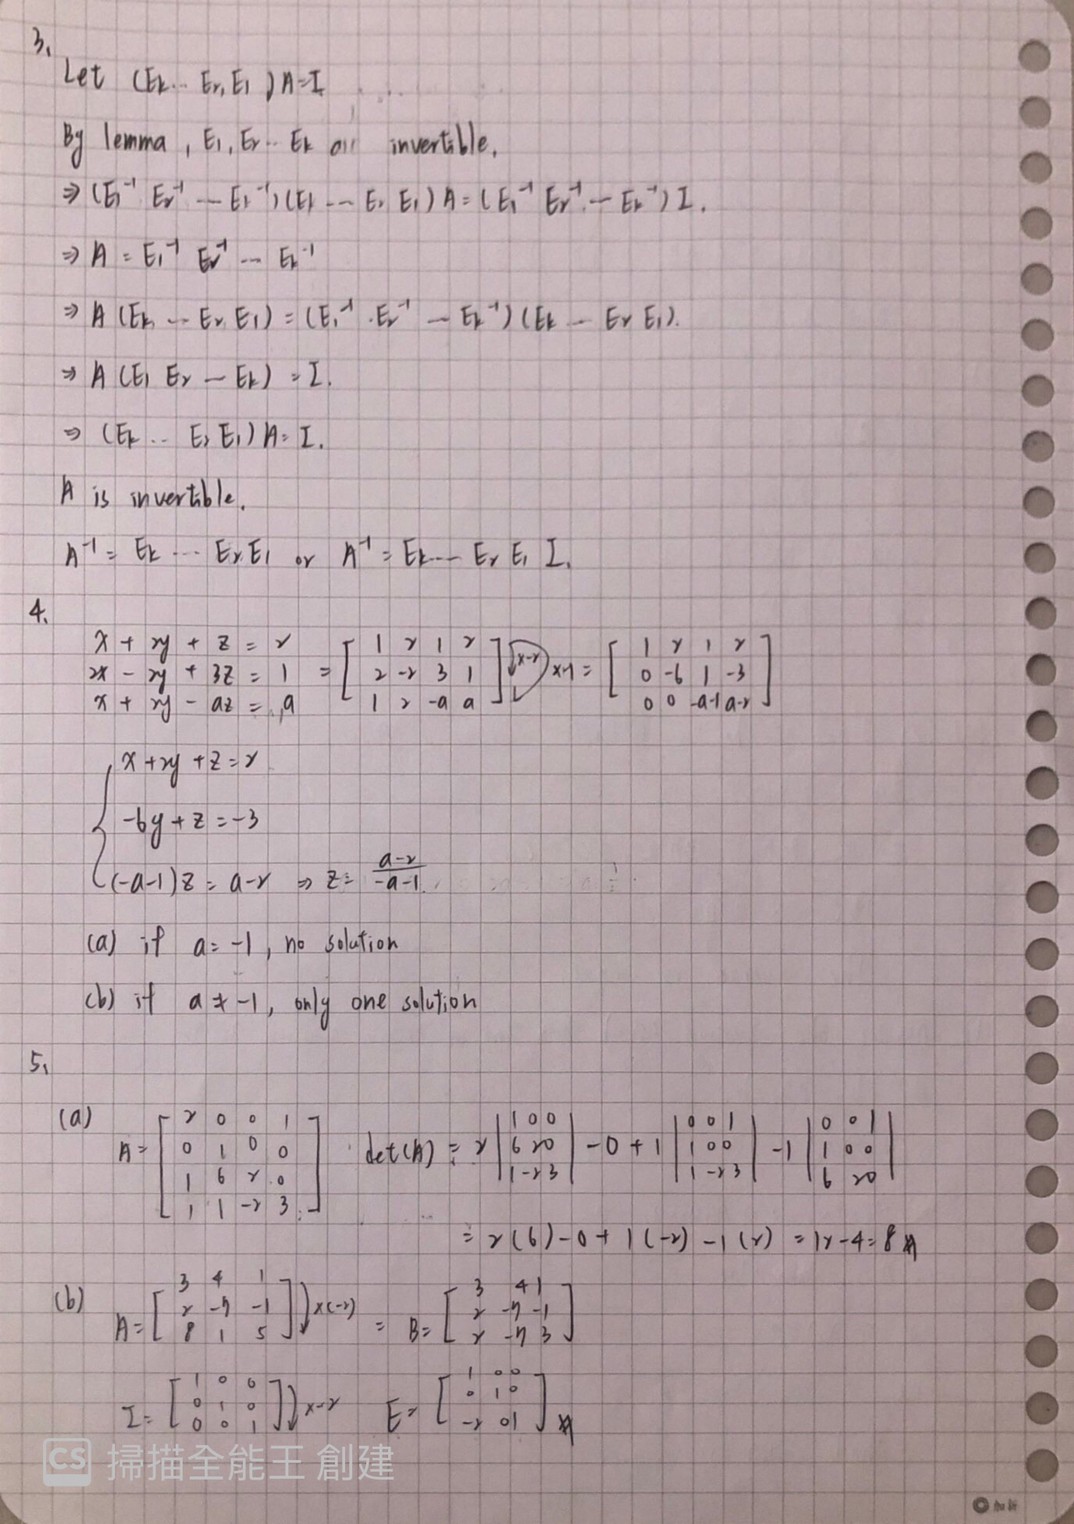 3.
Let (Ek … E2, E1) A = I
By lemma, E1, E2 … Ek all invertible.
⇒ (E1⁻¹ E2⁻¹ --- Ek⁻¹)(Ek --- E2 E1) A = (E1⁻¹ E2⁻¹ --- Ek⁻¹) I.
⇒ A = E1⁻¹ E2⁻¹ --- Ek⁻¹
⇒ A (Ek --- E2 E1) = (E1⁻¹ · E2⁻¹ --- Ek⁻¹)(Ek --- E2 E1).
⇒ A (E1 E2 --- Ek) = I.
⇒ (Ek … E2 E1) A = I.
A is invertible.
A⁻¹ = Ek … E2 E1 or A⁻¹ = Ek --- E2 E1 I.
4.
x + 2y + z = 2 = [ 1 2 1 2 ] = [ 1 2 1 2 ]
2x - 2y + 3z = 1 [ 2 -2 3 1 ] x-2 x-1 [ 0 -6 1 -3 ]
x + 2y - az = a [ 1 2 -a a ] [ 0 0 -a-1 a-2 ]
x + 2y + z = 2
-6y + z = -3
(-a-1)z = a-2 ⇒ z = (a-2)/(-a-1)
(a) if a = -1, no solution
(b) if a ≠ -1, only one solution
5.
(a) A = [ 2 0 0 1 / 0 1 0 0 / 1 6 2 0 / 1 1 -2 3 ] det(A) = 2 | 1 0 0 / 6 2 0 / 1 -2 3 | - 0 + 1 | 0 0 1 / 1 0 0 / 1 -2 3 | - 1 | 0 0 1 / 1 0 0 / 6 2 0 |
= 2(6) - 0 + 1(-2) - 1(2) = 12 - 4 = 8
(b) A = [ 3 4 1 / 2 -7 -1 / 8 1 5 ] x(-2) = B = [ 3 4 1 / 2 -7 -1 / 2 -7 3 ]
I = [ 1 0 0 / 0 1 0 / 0 0 1 ] x-2 E = [ 1 0 0 / 0 1 0 / -2 0 1 ]
CS 掃描全能王 創建
加新